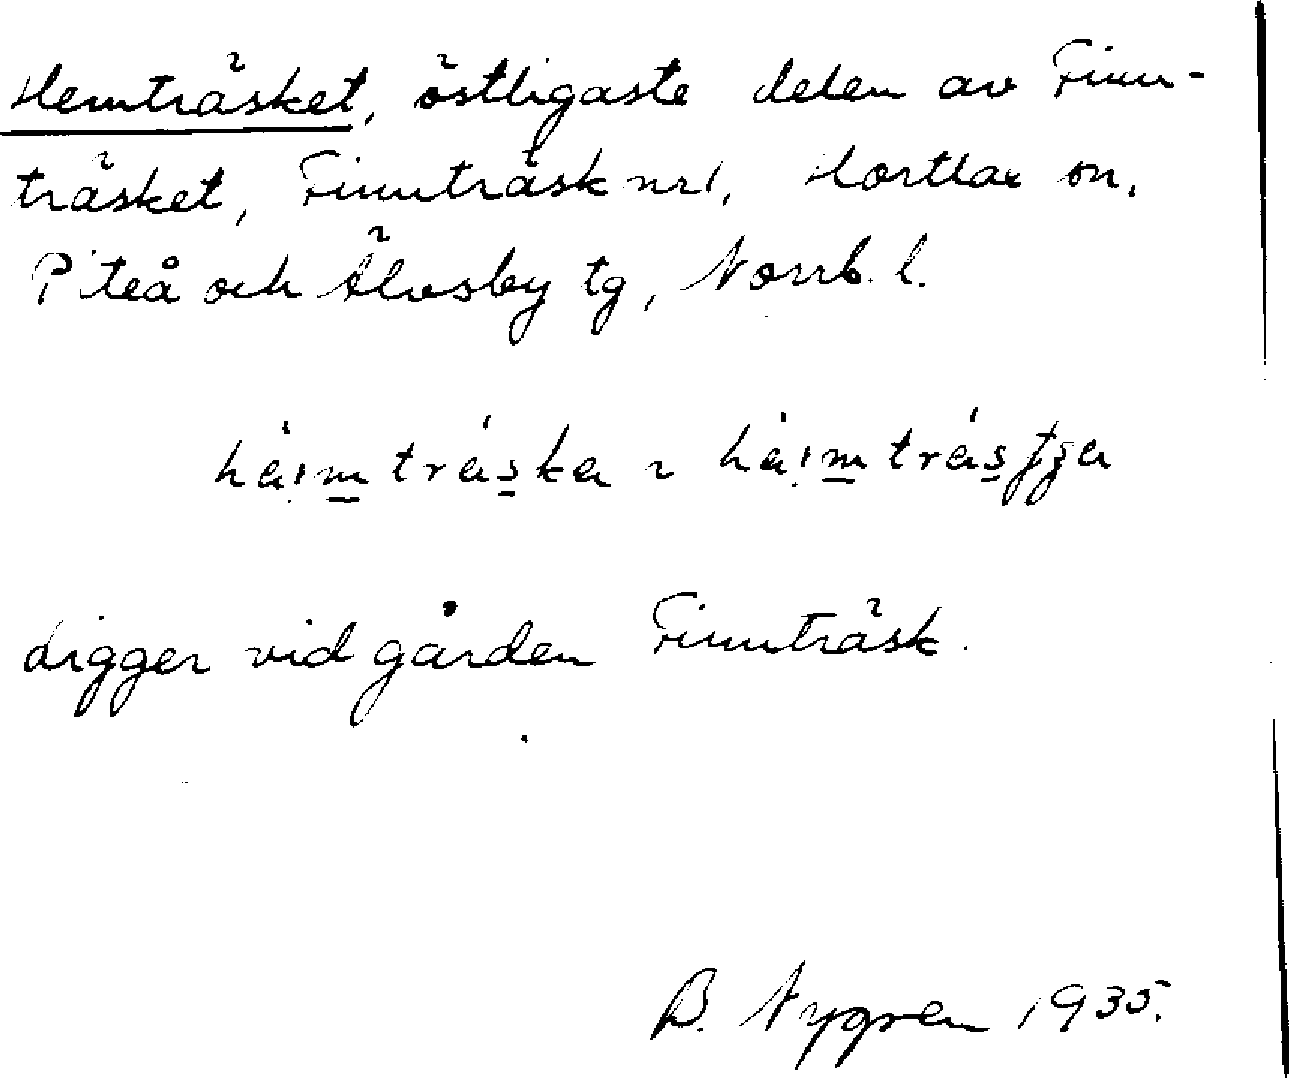 Hemträsket, östligaste delen av Finn-
träsket, Finnträsk nr 1, Hortlax sn,
Piteå och Älvsby tg, Norrb. l.
Ligger vid gården Finnträsk.
B. Nygren 1935.